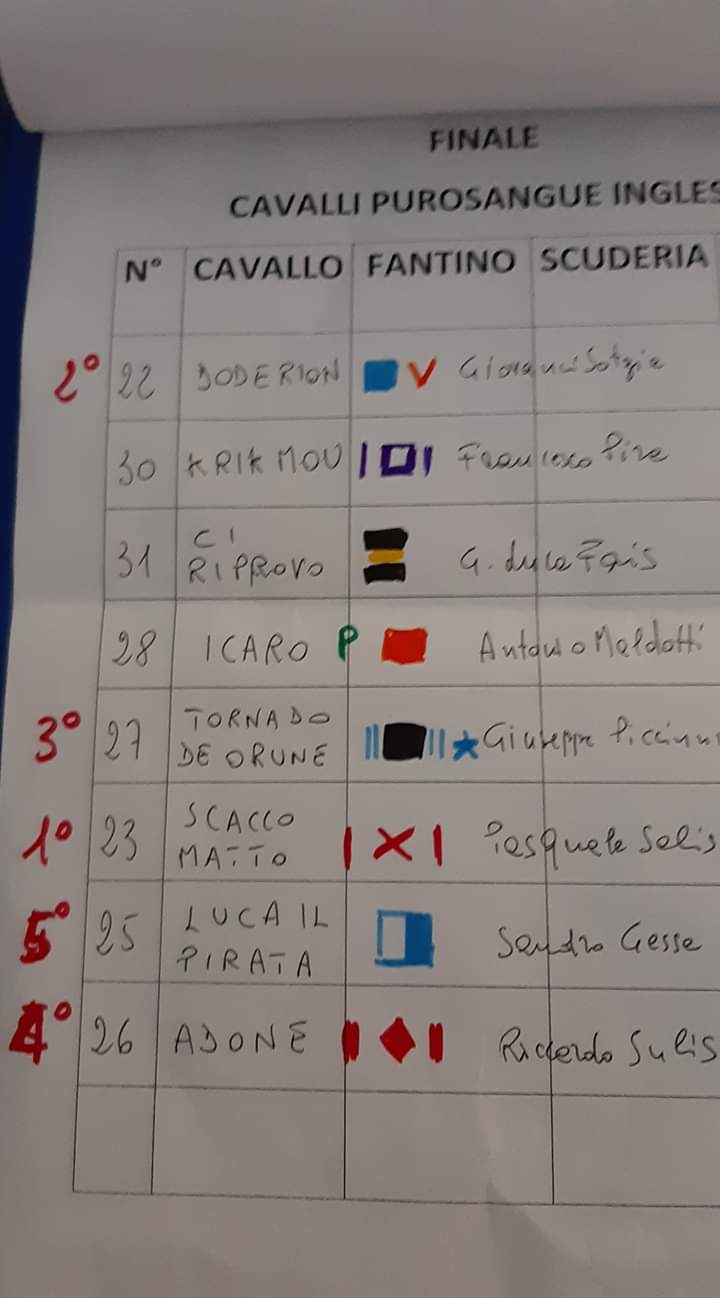 FINALE
CAVALLI PUROSANGUE INGLES
N° CAVALLO FANTINO SCUDERIA
2° 22 DODERION V Giovanni Sotgia
30 KRIKMOU Francesco Pire
31 CI RIPROVO G. Luca Fais
28 ICARO P Antonio Maldotti
3° 27 TORNADO DE ORUNE Giuseppe Piccinnu
1° 23 SCACCO MATTO X Pasquale Selis
5° 25 LUCA IL PIRATA Sandro Gesse
4° 26 ADONE Riccardo Sulis